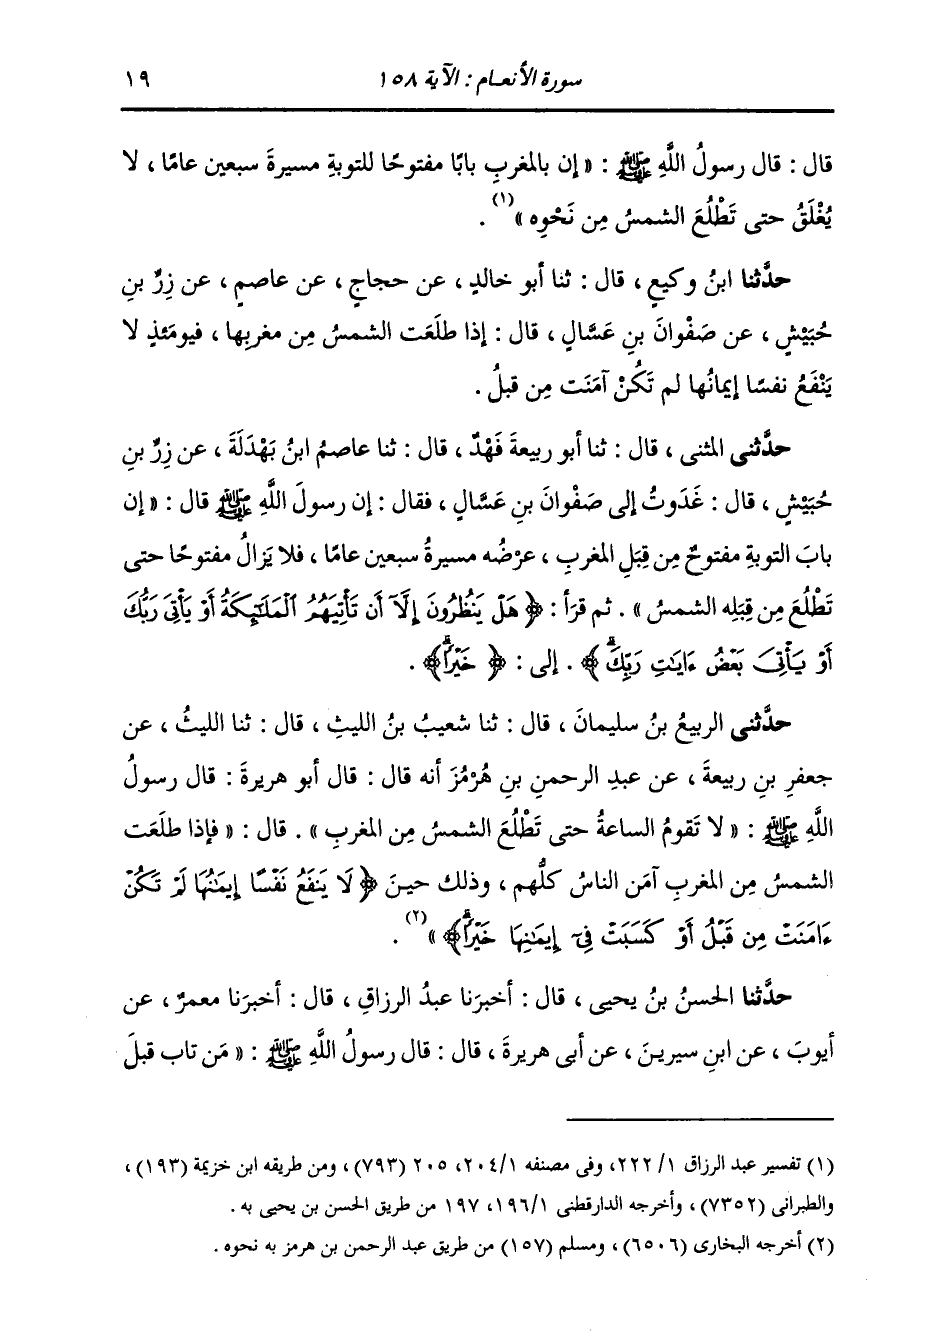 سورة الأنعام : الآية ١٥٨
١٩
قال : قال رسولُ اللَّهِ ﷺ : « إن بالمغربِ بابًا مفتوحًا للتوبةِ مسيرةَ سبعين عامًا ، لا
يُغْلَقُ حتى تَطْلُعَ الشمسُ مِن نَحْوِه »(١) .
حدَّثنا ابنُ وكيعٍ ، قال : ثنا أبو خالدٍ ، عن حجاجٍ ، عن عاصمٍ ، عن زِرِّ بنِ
حُبَيْشٍ ، عن صَفْوانَ بنِ عَسَّالٍ ، قال : إذا طلَعَت الشمسُ مِن مغربِها ، فيومَئذٍ لا
يَنْفَعُ نفسًا إيمانُها لم تَكُنْ آمَنَت مِن قبلُ .
حدَّثنى المثنى ، قال : ثنا أبو ربيعةَ فَهْدٌ ، قال : ثنا عاصمُ ابنُ بَهْدَلَةَ ، عن زِرِّ بنِ
حُبَيْشٍ ، قال : غَدَوتُ إلى صَفْوانَ بنِ عَسَّالٍ ، فقال : إن رسولَ اللَّهِ ﷺ قال : « إن
بابَ التوبةِ مفتوحٌ مِن قِبَلِ المغربِ ، عرْضُه مسيرةُ سبعين عامًا ، فلا يَزالُ مفتوحًا حتى
تَطْلُعَ مِن قِبَلِه الشمسُ » . ثم قرَأ : ﴿ هَلْ يَنظُرُونَ إِلَّآ أَن تَأْتِيَهُمُ ٱلْمَلَٰٓئِكَةُ أَوْ يَأْتِىَ رَبُّكَ
أَوْ يَأْتِىَ بَعْضُ ءَايَٰتِ رَبِّكَۗ ﴾ . إلى : ﴿ خَيْرًاۗ ﴾ .
حدَّثنى الربيعُ بنُ سليمانَ ، قال : ثنا شعيبُ بنُ الليثِ ، قال : ثنا الليثُ ، عن
جعفرِ بنِ ربيعةَ ، عن عبدِ الرحمنِ بنِ هُرْمُزَ أنه قال : قال أبو هريرةَ : قال رسولُ
اللَّهِ ﷺ : « لا تَقومُ الساعةُ حتى تَطْلُعَ الشمسُ مِن المغربِ » . قال : « فإذا طلَعَت
الشمسُ مِن المغربِ آمَن الناسُ كلُّهم ، وذلك حينَ ﴿ لَا يَنفَعُ نَفْسًا إِيمَٰنُهَا لَمْ تَكُنْ
ءَامَنَتْ مِن قَبْلُ أَوْ كَسَبَتْ فِىٓ إِيمَٰنِهَا خَيْرًاۗ ﴾ »(٢) .
حدَّثنا الحسنُ بنُ يحيى ، قال : أخبرَنا عبدُ الرزاقِ ، قال : أخبرَنا معمرٌ ، عن
أيوبَ ، عن ابنِ سيرينَ ، عن أبى هريرةَ ، قال : قال رسولُ اللَّهِ ﷺ : « مَن تاب قبلَ
(١) تفسير عبد الرزاق ١/ ٢٢٢، وفى مصنفه ٢٠٤/١، ٢٠٥ (٧٩٣) ، ومن طريقه ابن خزيمة (١٩٣) ،
والطبرانى (٧٣٥٢) ، وأخرجه الدارقطنى ١٩٦/١، ١٩٧ من طريق الحسن بن يحيى به .
(٢) أخرجه البخارى (٦٥٠٦) ، ومسلم (١٥٧) من طريق عبد الرحمن بن هرمز به نحوه .